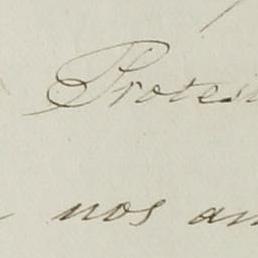 Protes
nos am